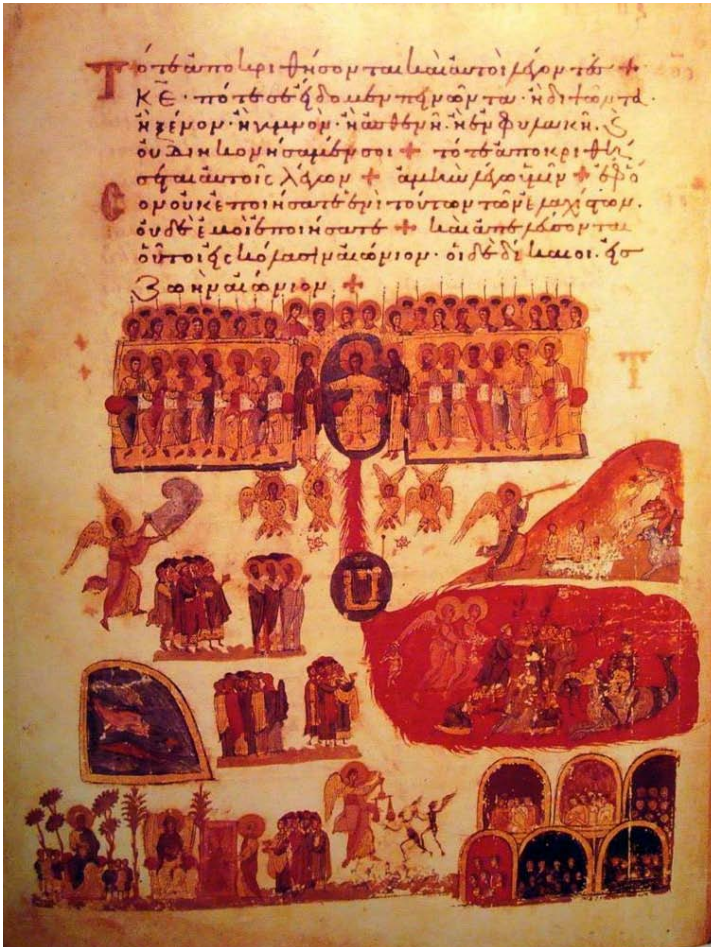 Τότε ἀποκριθήσονται καὶ αὐτοὶ λέγοντες +
Κ̅Ε̅· πότε σε εἴδομεν πεινῶντα· ἢ διψῶντα·
ἢ ξένον· ἢ γυμνὸν· ἢ ἀσθενῆ· ἢ ἐν φυλακῇ· ϗ
οὐ διηκονήσαμέν σοι + τότε ἀποκριθή
σεται αὐτοῖς λέγων + ἀμὴν λέγω ὑμῖν + ἐφ ὅ
σον οὐκ ἐποιήσατε ἑνὶ τούτων τῶν ἐλαχίστων·
οὐδὲ ἐμοὶ ἐποιήσατε + καὶ ἀπελεύσονται
οὗτοι εἰς κόλασιν αἰώνιον· οἱ δὲ δίκαιοι· εἰς
ζωὴν αἰώνιον +